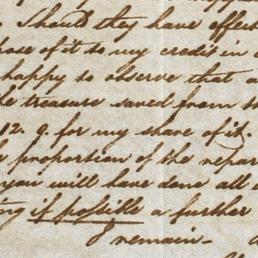 . Should they have effect
pose of it to my credit in
happy to observe that a
le treasure saved from
12. 9. for my share of it.
e proportion of the repar
you will have done all
ng if possible a further
I remain -